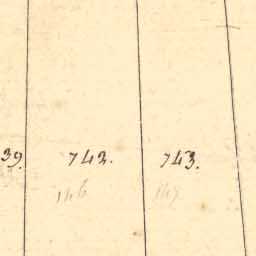 39. 742. 743.
146 147